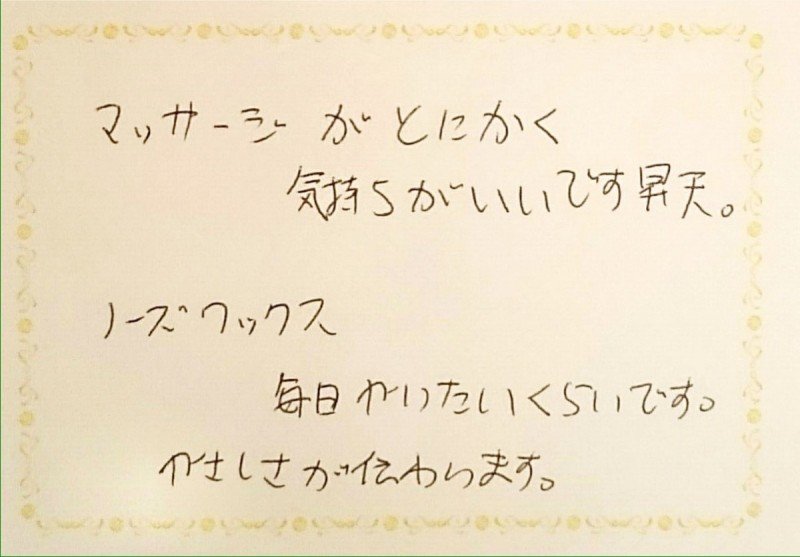 マッサージがとにかく
気持ちがいいです昇天。
ノーズワックス
毎日やりたいくらいです。
やさしさが伝わります。